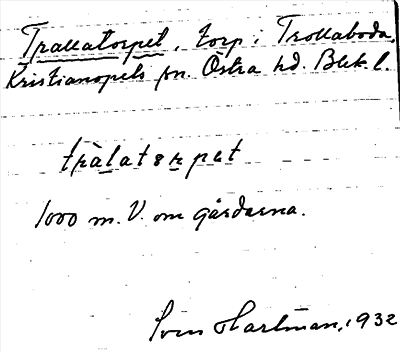 Trallatorpet, torp, Trollaboda,
Kristianopels sn. Östra hd. Blek. l.
tràlatɘrpɘt
1000 m. V. om gårdarna.
Sven Hartman, 1932